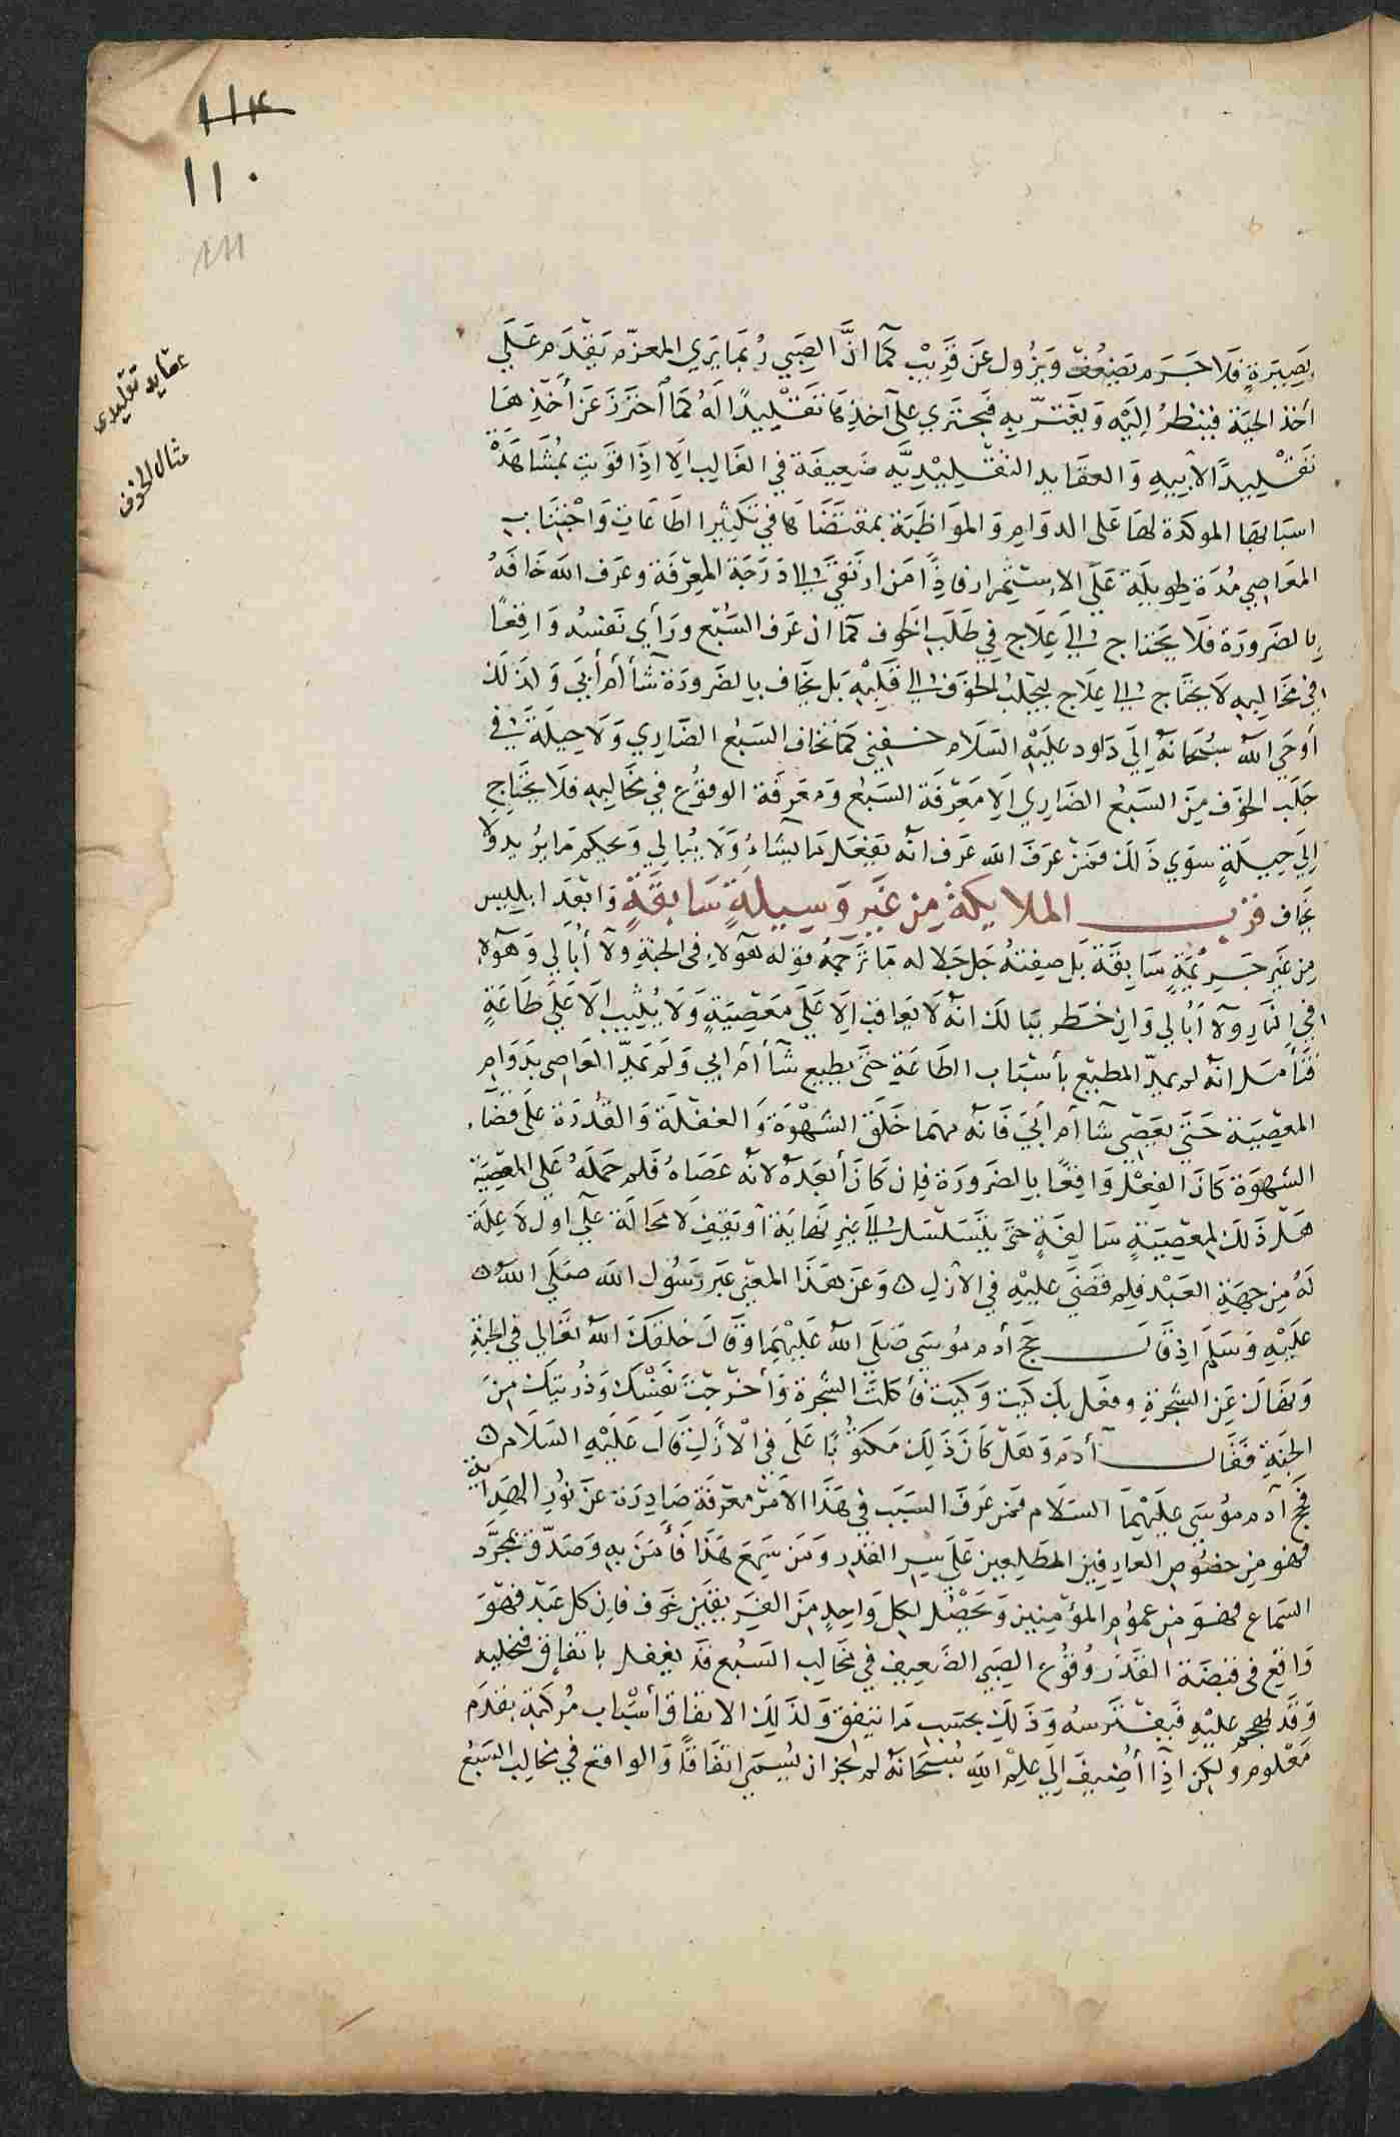 ١١٤
١١٠
١١١
عقايد تقليدي
مثال الخوف
بَصِيرَةٍ فَلَا جَرَم يَضعُفُ وَيَزُول عَن قَرِيبْ كَمَا انَّ الصَبِي رُبمَا يَرَي المعزّم يَقْدَم عَلَي
أخذ الحيَة فينظرُ اِلَيْهِ وَيَغترّ بِهِ فيجتري عَلى آخذِهَا تَقْلِيدًا لَهُ كمَا اُحتَرَزَ عَن أَخذِهَا
تَقْلِيدًا لأبِيهِ وَالعقَايد التقْلِيْدِيَّه ضَعِيفَة في الغَالِب اِلَا اذَا قوَيت بمُشَاهَدْة
اسبَابهَا الموكدة لهَا عَلى الدوَامِ وَالموَاظَبَة بمقتضَاهَا في تكثِير الطَاعَات وَاجْتِنَاب
المعَاصِي مُدَة طوِيلَة عَلَى الاِستِثمرار فاذًا مَن ارتَقَى اِلى دَرَجَة المعِرْفَة وعَرَف اللَه خَافَهُ
بِالضَرورَة فَلا يَحتاج اِلىَ عِلَاج فِي طَلَب الخَوف كمَا ان عَرَف السَبُع ورَأَي نَفسُه وَاقِعًا
فِي مخَالِيبِهِ لَا يحتَاج اِلى عِلَاج ليجلبُ الخوَف اِلى قَلبِهِ بَل يخَاف بِالضَرورَة شآء أَم أَبَي وَلذَلَك
أَوحَي اللَه سُبْحَانَهُ اِلَي دَاود عليَه السَلَام خفنِي كمَا تخَاف السَبُع الضَارِي وَلَا حِيلَة فِي
جَلَب الخوَف مِنَ السَبُع الضَارِي اِلَا مَعِرْفَة السَبُع وَمَعرِفَة الوقوُع فِي مخَالِيبِه فلَا يحتَاج
اِلَي حِيلَةٍ سوَي ذَلَك فمَن عرَف اللَه عرَف انَه يَفعَل مَا يشَاءُ وَلَا يُبَالِي وَيحكم مَا يُريد ولا
يخَاف قرّبَ الملايكَة مِن غَيَرِ وَسِيلَةٍ سَابِقَةٍ وَابعَد ابلِيس
مِن غَيَر جَرِيْمَةٍ سَابِقَة بَل صِفَتهُ جَلَ جَلالهِ مَا تَرجمهُ قوله هَؤلاءِ فى الجنةِ ولآ أُبَالي وَهَؤلاءِ
فِي النَارِ ولآ أُبَالي وَاِن خَطر ببَالك انَهُ لَا يُعَاقب اِلَا عَلَى مَعصِيَةٍ وَلَا يُثِيب الَا عَلَى طَاعَةٍ
فَتَأمَل انَهُ لم يمدّ المطِيع بأسْبَاب الطَاعَةِ حَتَى يطيع شآء أم ابي وَلَم يمدّ العَاصِي بدَوَامِ
المعصِيَة حَتَى يَعصِي شَاء أم أَبَي فَانَه مهمَا خَلَقَ الشَهْوَة وَالغفلَة وَالقُدرَة عَلَى قضَآء
الشَهوَة كَانَ الفِعْل وَاقعًا بِالضَرورَة فاِن كَانَ أبعَدَهُ لانَه عَصَاهُ فَلم حمَلَهُ عَلَى المعصِيَة
هَلْ ذَلَكَ لمعصِيَةٍ سَالِفَةٍ حَتَى يتَسَلسَل اِلىَ غيرِ نهَايَة أو يَقِف لَا محَالَة عَلى اول لَا عِلَة
لَهُ مِن جِهَةِ العَبْد فلِم قَضَىَ عليْهِ في الأزَلِ ۞ وَعَن هَذَا المعنَى عبَر رَسُول اللَه صَلَي اللَه ۞
عليَهِ وَسَلَم اذ قَالَ حَجّ أدم موُسَي صَلَي اللَه عَليْهِمَا وَقَالَ خلقَك اللَهُ تعَالي في الجنةِ
وَنهَاكَ عَنِ الشجَرةِ وفعَل بِكَ كَيْت وَكَيْت فَأكلَتَ الشجَرة وَأخرَجْتَ نفسَكَ وَذُريتَكَ مِنَ
الجنَةِ فَقَالَ آدَم وَهَل كَانَ ذَلِكَ مَكتوُبًا عَلَى فِي الأزَلِ قَالَ عَلَيْهِ السَلَام ۞
فَحَجّ آدم موُسَي عليَهمَا السَلَام فمَن عَرَفَ السَبَب في هَذَا الأَمَر معَرفَة صَادِرَة عَن نوُر الهدَاية
فهوَ مِن خصُوص العارِفِين المطَلِعين عَلَى سِرِ القدَرِ وَمَن سَمِعَ هَذَا فَأَمَن بِهِ وَصَدّق بمجرَّد
السَماعِ فهوَ مِن عموُم المؤمِنين وَيحصُل لِكلّ وَاحِدٍ مِنَ الفريقَين خوَف فاِن كل عَبد فهوَ
وَاقع في قبضَة القدَر وقوُع الصَبي الضَعِيف في مخَالِب السَبُع قد يغفل باتفَاق فيخليه
وَقَد يهجم عليهِ فَيَفتَرسهُ وَذَلَك بحسَب مَا يتفِق وَلذَلِكَ الاتفَاق أَسْبَاب مُرتّبَة بقدَر
مَعْلوم ولكِن اذَا أُضِيفَ اِلَي عِلْم اللَهِ سُبحَانَهُ لم يجز ان يُسمَي اتفَاقًا وَالواقع في مخَالِب السَبُع